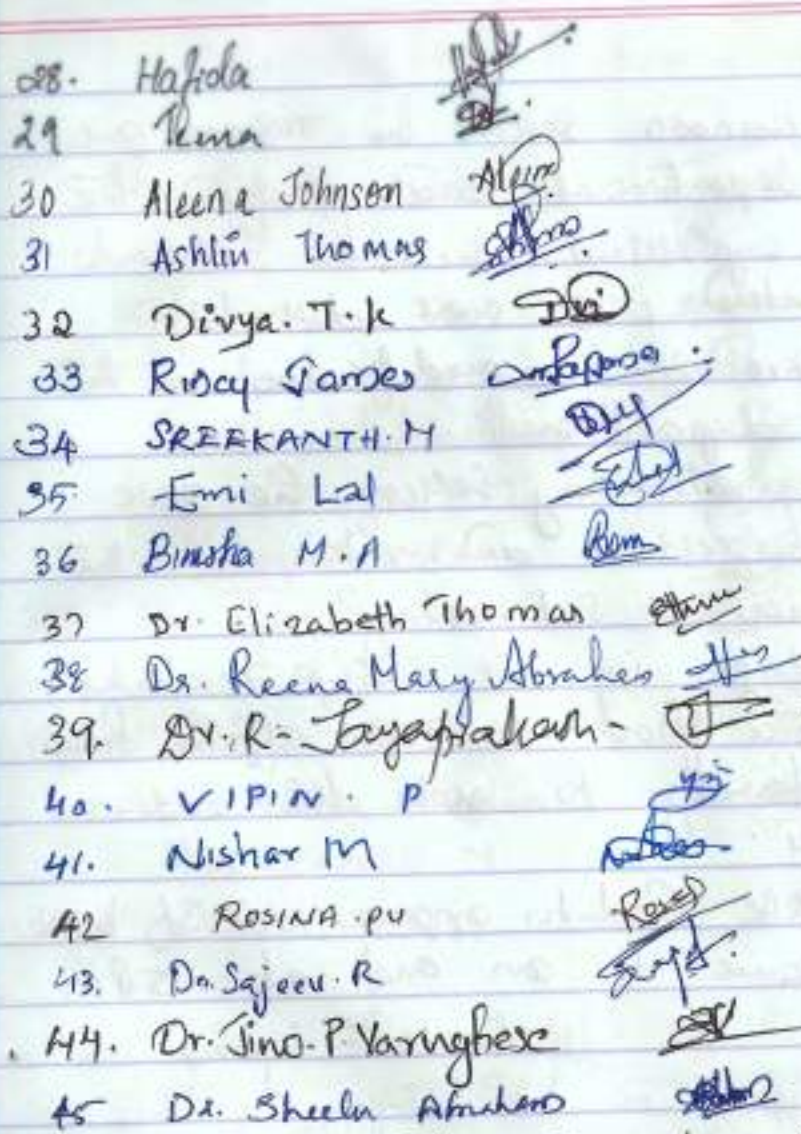 28. Hafiola
29 Thena
30 Aleena Johnson
31 Ashlin Thomas
32 Divya. T. K
33 Rincy James
34 SREEKANTH. M
35 Emi Lal
36 Bimsha M. A
37 Dr. Elizabeth Thomas
38 Dr. Reena Mary Abraham
39. Dr. R- Jayaprakash-
40. VIPIN. P
41. Nishar M
42 ROSINA. PU
43. Dr. Sajeev. R
44. Dr. Jino. P. Varughese
45 Dr. Sheela Abraham